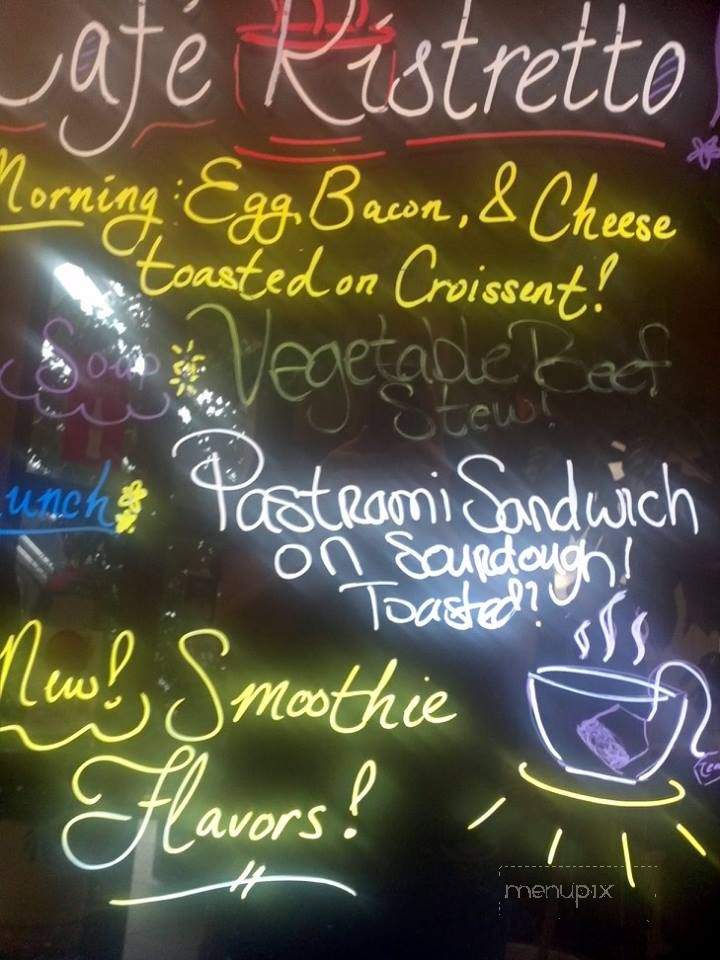 Café Ristretto
Morning: Egg, Bacon, & Cheese
toasted on Croissent!
Soup Vegetable Beef
Stew!
unch Pastrami Sandwich
on Sourdough!
Toasted?
New! Smoothie
Flavors!
Tea
menupix